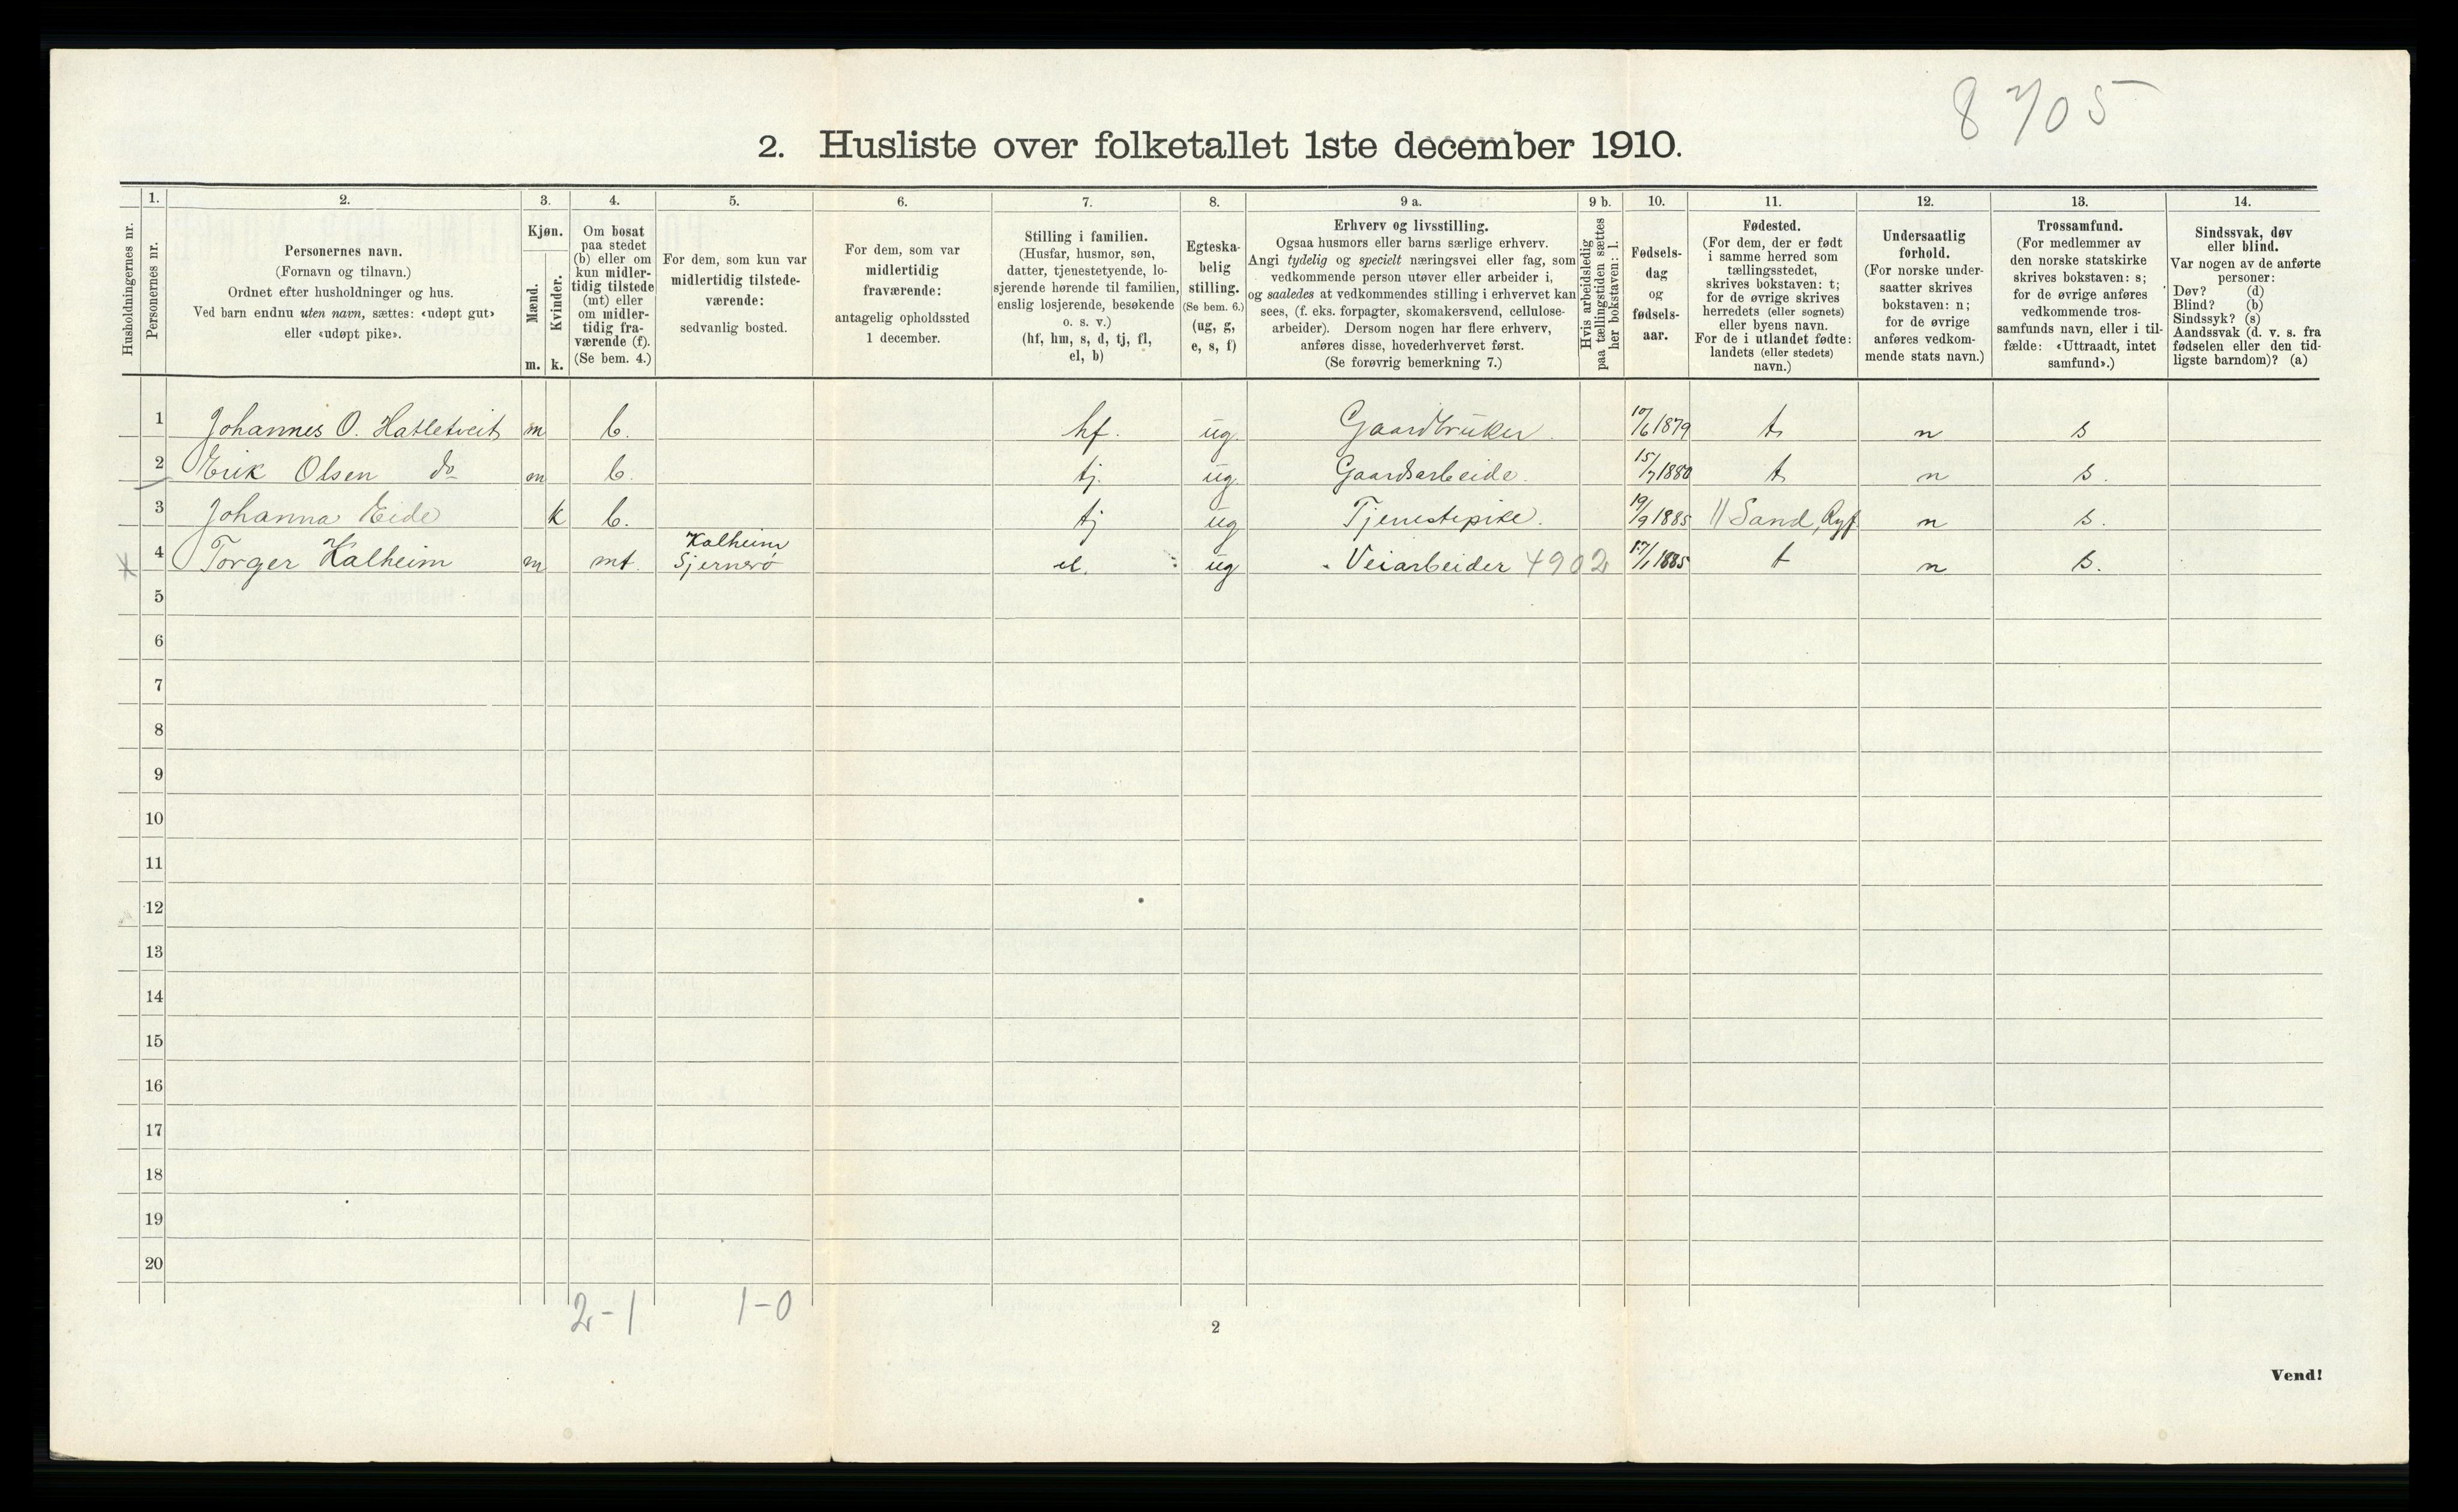 8 7/05
2. Husliste over folketallet 1ste december 1910.
Husholdningernes nr.
1.
Personernes nr.
2.
Personernes navn.
(Fornavn og tilnavn.)
Ordnet efter husholdninger og hus.
Ved barn endnu uten navn, sættes: «udøpt gut»
eller «udøpt pike».
3.
Kjøn.
Mænd.
Kvinder.
m. k.
4.
Om bosat
paa stedet
(b) eller om
kun midler-
tidig tilstede
(mt) eller
om midler-
tidig fra-
værende (f).
(Se bem. 4.)
5.
For dem, som kun var
midlertidig tilstede-
værende:
sedvanlig bosted.
6.
For dem, som var
midlertidig
fraværende:
antagelig opholdssted
1 december.
7.
Stilling i familien.
(Husfar, husmor, søn,
datter, tjenestetyende, lo-
sjerende hørende til familien,
enslig losjerende, besøkende
o. s. v.)
(hf, hm, s, d, tj, fl,
el, b)
8.
Egteska-
belig
stilling.
(Se bem. 6.)
(ug, g,
e, s, f)
9 a.
Erhverv og livsstilling.
Ogsaa husmors eller barns særlige erhverv.
Angi tydelig og specielt næringsvei eller fag, som
vedkommende person utøver eller arbeider i,
og saaledes at vedkommendes stilling i erhvervet kan
sees, (f. eks. forpagter, skomakersvend, cellulose-
arbeider). Dersom nogen har flere erhverv,
anføres disse, hovederhvervet først.
(Se forøvrig bemerkning 7.)
9 b.
Hvis arbeidsledig
paa tællingstiden sættes
her bokstaven: l.
10.
Fødsels-
dag
og
fødsels-
aar.
11.
Fødested.
(For dem, der er født
i samme herred som
tællingsstedet,
skrives bokstaven: t;
for de øvrige skrives
herredets (eller sognets)
eller byens navn.
For de i utlandet fødte:
landets (eller stedets)
navn.)
12.
Undersaatlig
forhold.
(For norske under-
saatter skrives
bokstaven: n;
for de øvrige
anføres vedkom-
mende stats navn.)
13.
Trossamfund.
(For medlemmer av
den norske statskirke
skrives bokstaven: s;
for de øvrige anføres
vedkommende tros-
samfunds navn, eller i til-
fælde: «Uttraadt, intet
samfund».)
14.
Sindssvak, døv
eller blind.
Var nogen av de anførte
personer:
Døv? (d)
Blind? (b)
Sindssyk? (s)
Aandssvak (d. v. s. fra
fødselen eller den tid-
ligste barndom)? (a)
1 Johannes O. Hatletveit m b. hf. ug. Gaardbruker. 10/6 1879 t n s
2 Erik Olsen do m b. tj. ug Gaardsarbeide. 15/7 1880 t n s.
3 Johanna Eide k b. tj ug Tjenestepike. 19/9 1885 // Sand, Ryf. n s.
4 Torger Kalheim m mt. Kalheim Sjernerö el. ug Veiarbeider 4902 17/1 1885 t n s.
5
6
7
8
9
10
11
12
13
14
15
16
17
18
19
20
2-1 1-0
2
Vend!